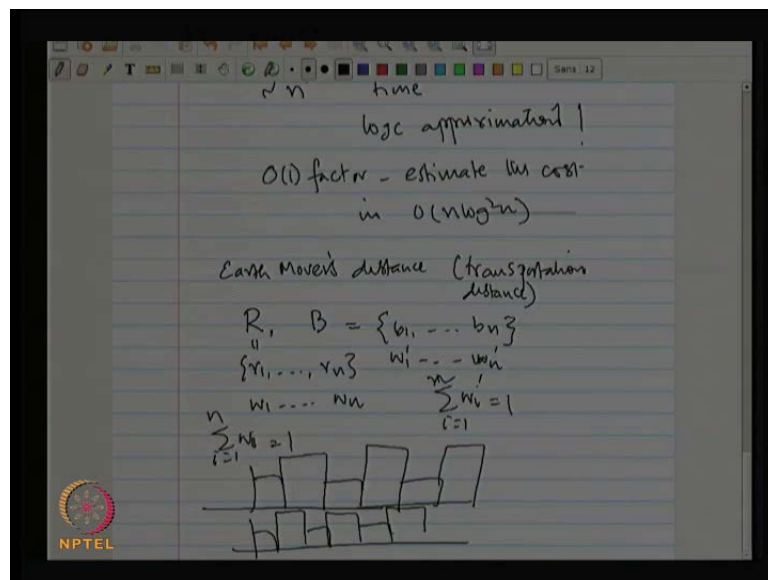 T Sans 12
~ n time
logc approximation!
O(1) factor - estimate the cost
in O(nlog²n)
Earth Mover's distance (transportation
distance)
R, B = {b1, ... bn}
" w1' ... wn'
{r1, ..., rn}
w1 .... wn
n ∑ i=1 wi' = 1
n ∑ i=1 wi = 1
NPTEL